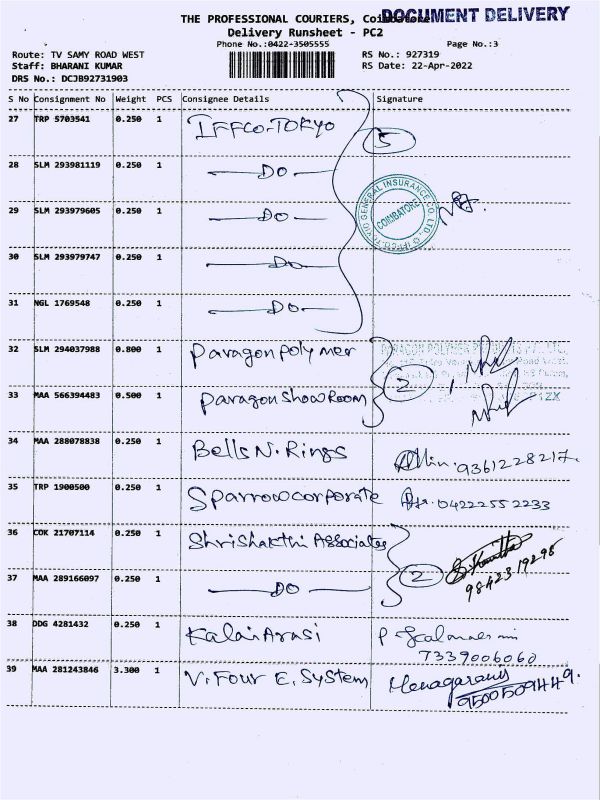 DOCUMENT DELIVERY
THE PROFESSIONAL COURIERS, Coimbatore
Delivery Runsheet - PC2
Phone No.:0422-3505555 Page No.:3
Route: TV SAMY ROAD WEST RS No.: 927319
Staff: BHARANI KUMAR RS Date: 22-Apr-2022
DRS No.: DCJB92731903
S No Consignment No Weight PCS Consignee Details Signature
27 TRP 5703541 0.250 1 IFFCO-TOKYO 5
28 SLM 293981119 0.250 1 DO
GENERAL INSURANCE CO. LTD.
COIMBATORE
29 SLM 293979605 0.250 1 DO
30 SLM 293979747 0.250 1 DO
31 NGL 1769548 0.250 1 DO
32 SLM 294037988 0.800 1 Paragon polymer 2
33 MAA 566394483 0.500 1 Paragon Show Room
34 MAA 288078838 0.250 1 Bells N. Rings 9361228217
35 TRP 1900500 0.250 1 Sparrow corporate 04222552233
36 COK 21707114 0.250 1 Shri Shakthi Associates 2
98423 19298
37 MAA 289166097 0.250 1 DO
38 DDG 4281432 0.250 1 Kalai Arasi
7339006060
39 MAA 281243846 3.300 1 V. Four E. System
9500509449